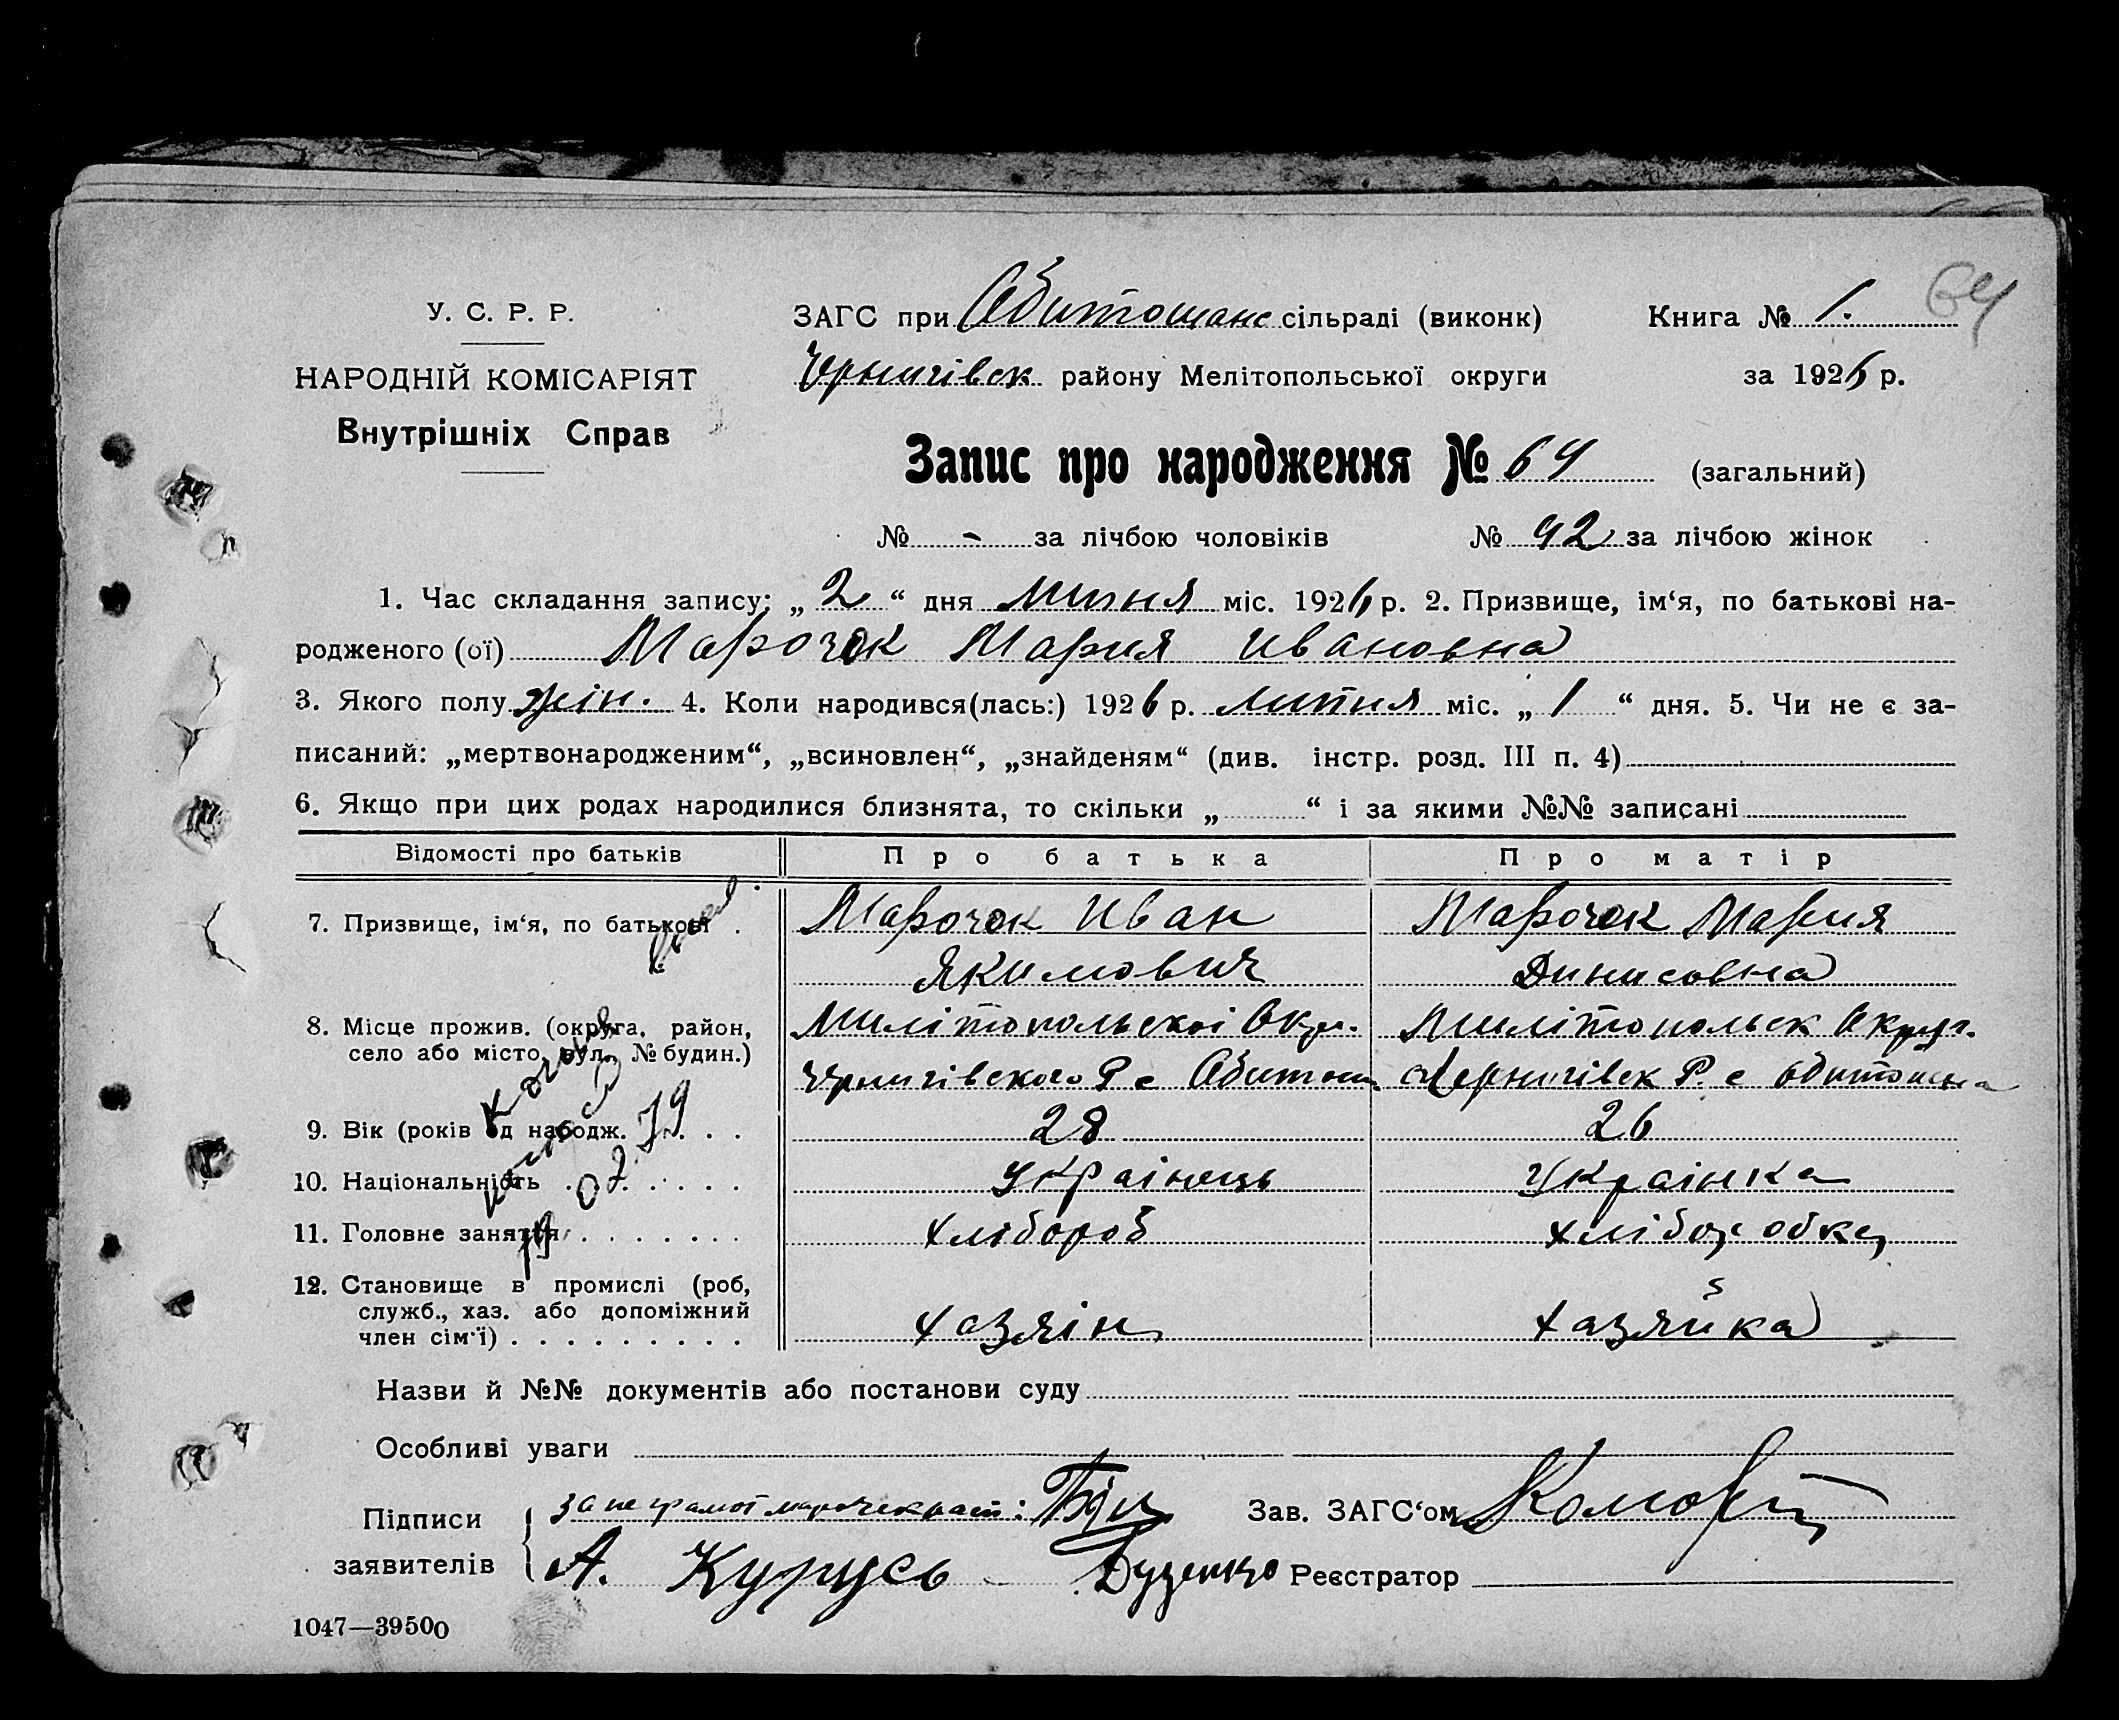 64
У. С. Р. Р.
НАРОДНІЙ КОМІСАРІЯТ
Внутрішніх Справ
ЗАГС при Обитошанс сільраді (виконк)
Книга № 1.
Чрнигівск району Мелітопольської округи
за 1926 р.
Запис про народження № 64 (загальний)
№ - за лічбою чоловіків № 42 за лічбою жінок
1. Час складання запису: „ 2 “ дня липня міс. 1926 р. 2. Призвище, ім‘я, по батькові на-
родженого (ої) Марочок Мария Ивановна
3. Якого полу жін. 4. Коли народився(лась:) 1926 р. липня міс. „ 1 “ дня. 5. Чи не є за-
писаний: „мертвонародженим“, „всиновлен“, „знайденям“ (див. інстр. розд. III п. 4)
6. Якщо при цих родах народилися близнята, то скільки „ “ і за якими №№ записані
Відомості про батьків Про батька Про матір
7. Призвище, ім‘я, по батькові Марочок Иван Марочок Мария
Якимович Динисовна
8. Місце прожив. (округа, район, Милітопольскоі Окр. Милітопольск Округ.
село або місто, вул. № будин.) Чрнигівского Р с Обитош. Чернигівск Р. с Обитошна
9. Вік (років од народж. 28 26
10. Національність Украінець Украінка
11. Головне заняття хлібороб хліборобка
12. Становище в промислі (роб,
служб., хаз. або допоміжний
член сім‘ї) хазяін хазяйка
07 79
Назви й №№ документів або постанови суду
Особливі уваги
Підписи
заявителів
за неграмот
Зав. ЗАГС‘ом
А. Курусь Буценко
Реєстратор
1047—39500